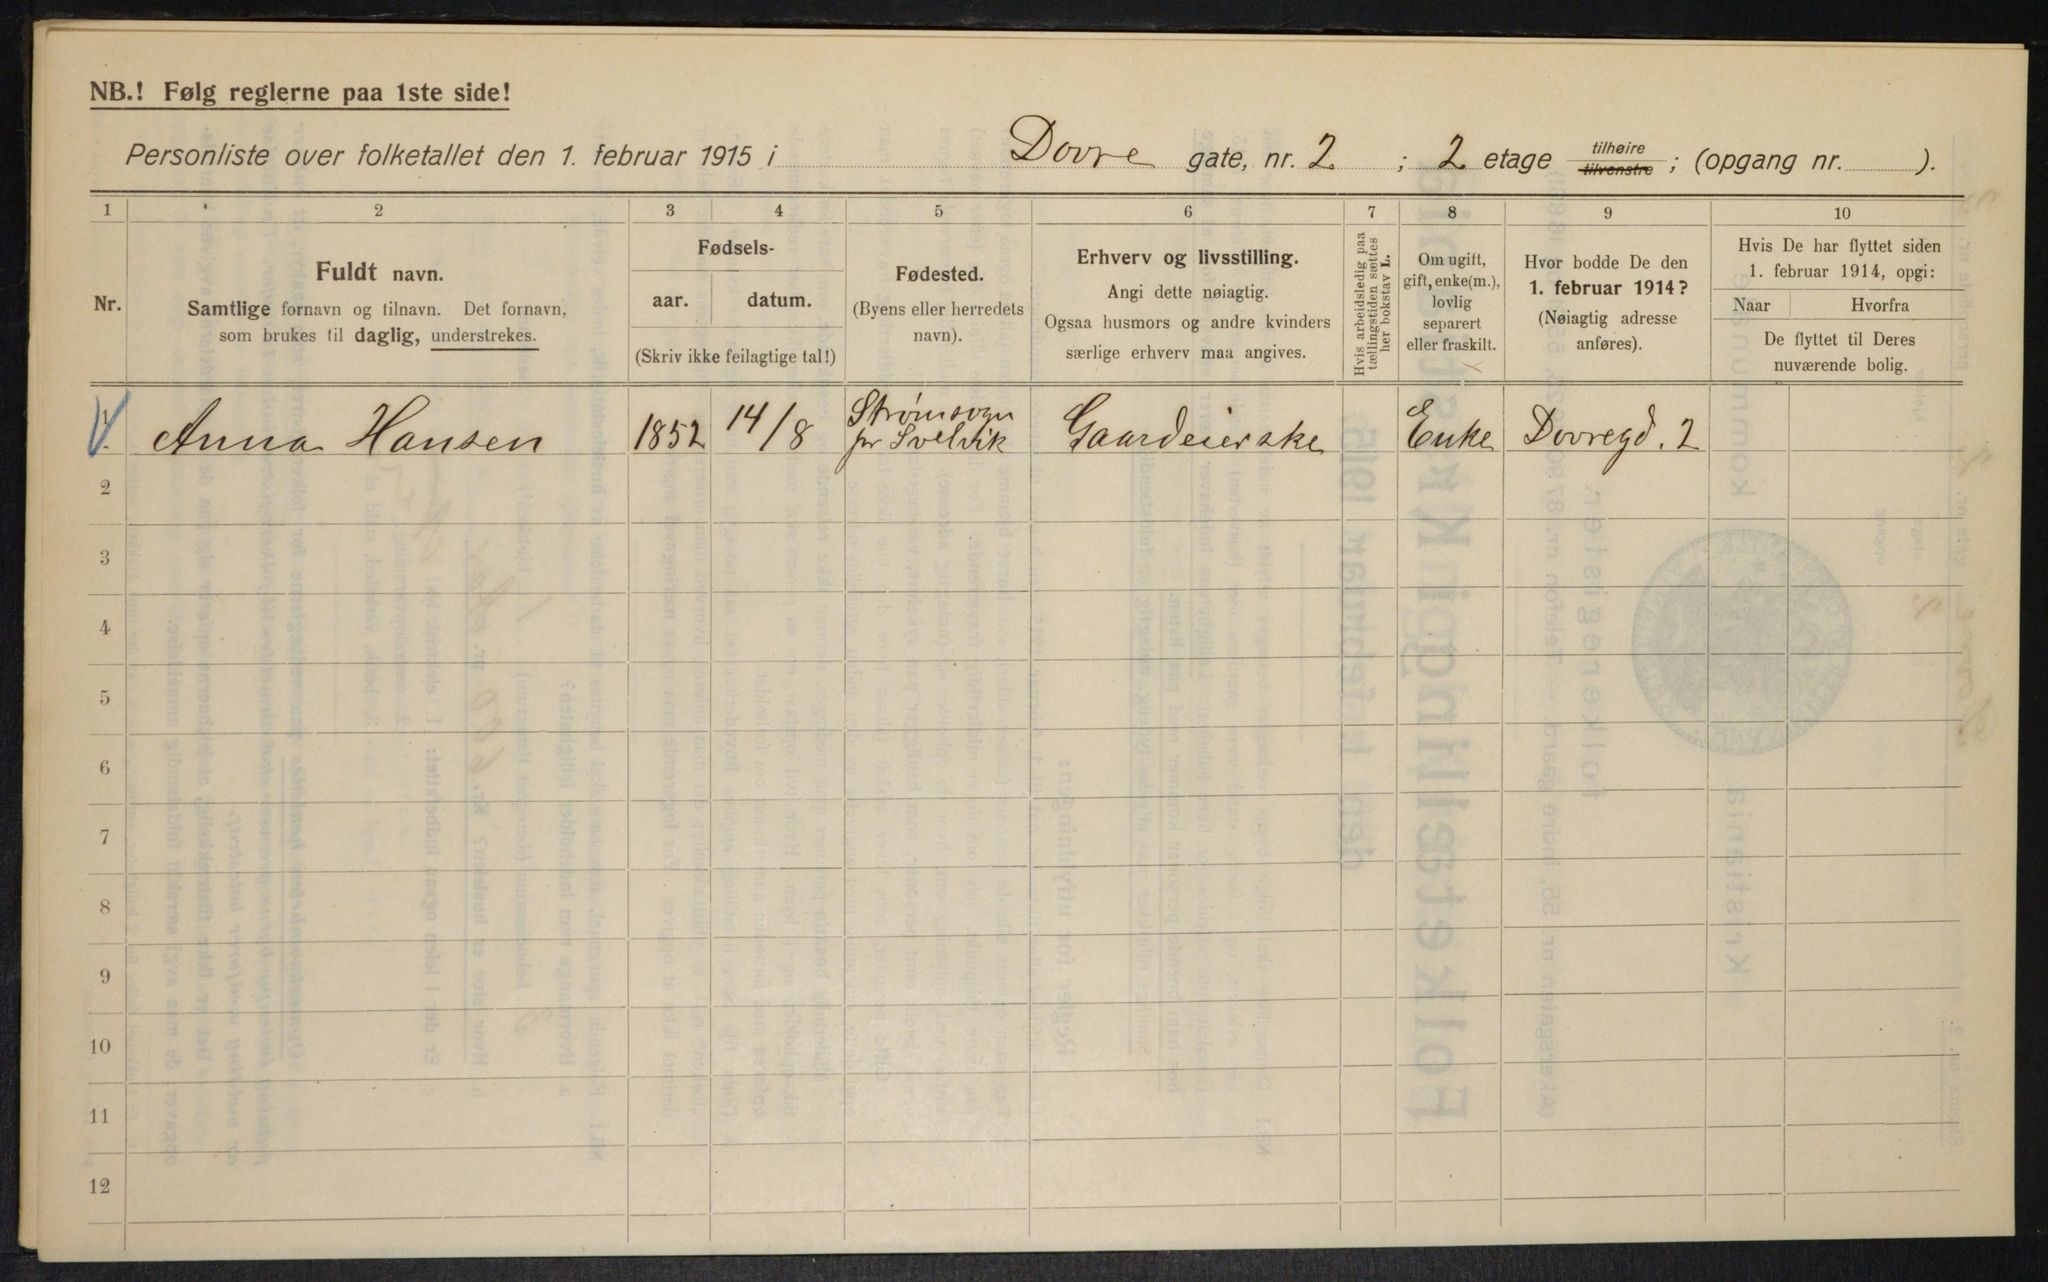 NB.! Følg reglerne paa 1ste side!
Personliste over folketallet den 1. februar 1915 i Dovre gate, nr. 2 ; 2 etage tilhøire tilvenstre ; (opgang nr. ).
1 2 3 4 5 6 7 8 9 10
Nr.
Fuldt navn.
Samtlige fornavn og tilnavn. Det fornavn,
som brukes til daglig, understrekes.
Fødsels-
aar. datum.
(Skriv ikke feilagtige tal!)
Fødested.
(Byens eller herredets
navn).
Erhverv og livsstilling.
Angi dette nøiagtig.
Ogsaa husmors og andre kvinders
særlige erhverv maa angives.
Hvis arbeidsledig paa
tællingstiden sættes
her bokstav L.
Om ugift,
gift, enke(m.),
lovlig
separert
eller fraskilt.
Hvor bodde De den
1. februar 1914?
(Nøiagtig adresse
anføres).
Hvis De har flyttet siden
1. februar 1914, opgi:
Naar Hvorfra
De flyttet til Deres
nuværende bolig.
1. Anna Hansen 1852 14/8 Strømsogn
pr Svelvik Gaardeierske Enke Dovregd. 2
2
3
4
5
6
7
8
9
10
11
12